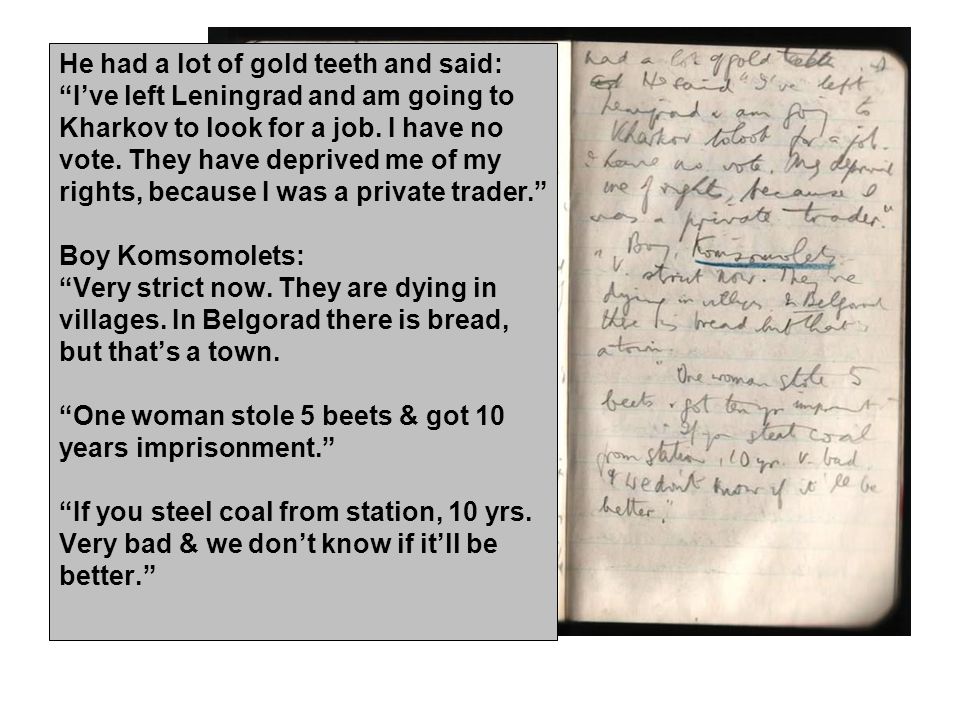 He had a lot of gold teeth and said:
“I’ve left Leningrad and am going to
Kharkov to look for a job. I have no
vote. They have deprived me of my
rights, because I was a private trader.”
Boy Komsomolets:
“Very strict now. They are dying in
villages. In Belgorad there is bread,
but that’s a town.
“One woman stole 5 beets & got 10
years imprisonment.”
“If you steel coal from station, 10 yrs.
Very bad & we don’t know if it’ll be
better.”
had a lot of gold teeth
He said "I've left
Leningrad & am going to
Kharkov to look for a job.
I have no vote. They deprived
me of rights, because I
was a private trader."
"Boy, Komsomolets.
V. strict now. They're
dying in villages. In Belgorad
there is bread but that's
a town.
"One woman stole 5
beets & got ten yr imprisonment
If you steal coal
from station, 10 yr. V. bad.
& we don't know if it'll be
better."